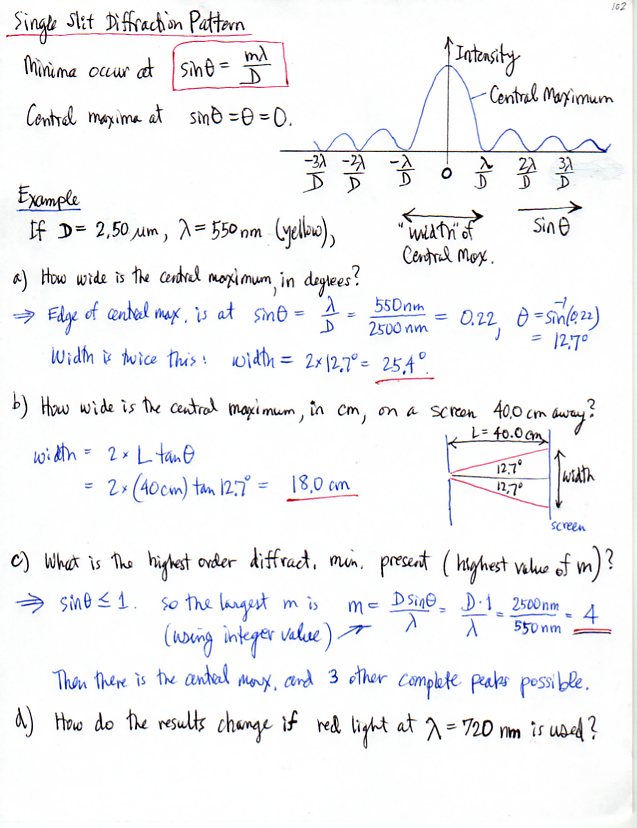 102
Single Slit Diffraction Pattern
Minima occur at sinθ = mλ/D
Central maxima at sinθ = θ = 0.
Intensity
Central Maximum
-3λ/D -2λ/D -λ/D 0 λ/D 2λ/D 3λ/D
"width" of Central Max.
Sinθ
Example
If D = 2.50 μm, λ = 550 nm (yellow),
a) How wide is the central maximum, in degrees?
⇒ Edge of central max. is at sinθ = λ/D = 550nm/2500nm = 0.22, θ = sin⁻¹(0.22)
= 12.7°
Width is twice this: width = 2×12.7° = 25.4°.
b) How wide is the central maximum, in cm, on a screen 40.0 cm away?
width = 2 × L tanθ
= 2×(40cm) tan 12.7° = 18.0 cm
L = 40.0 cm
12.7°
12.7°
width
screen
c) What is the highest order diffract. min. present (highest value of m)?
⇒ sinθ ≤ 1. so the largest m is m = D sinθ/λ = D·1/λ = 2500nm/550nm = 4
(using integer value)
Then there is the central max, and 3 other complete peaks possible.
d) How do the results change if red light at λ = 720 nm is used?